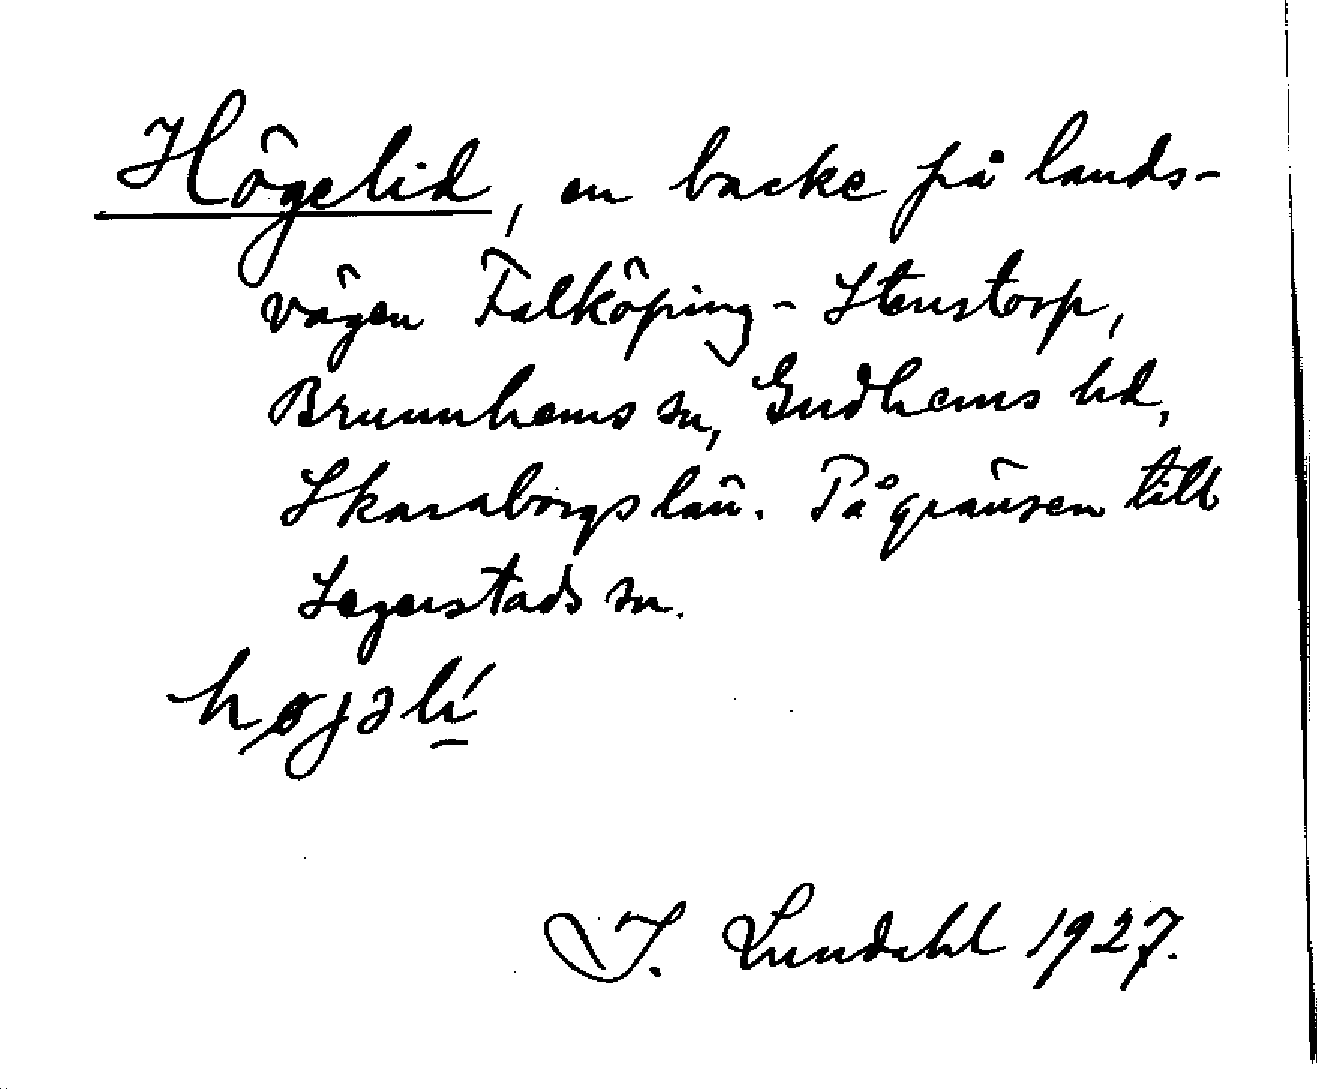 Högelid, en backe på lands-
vägen Falköping - Stenstorp,
Brunnhems sn, Gudhems hd,
Skaraborgs län. På gränsen till
Segerstads sn.
højəlí
I. Lundahl 1927.